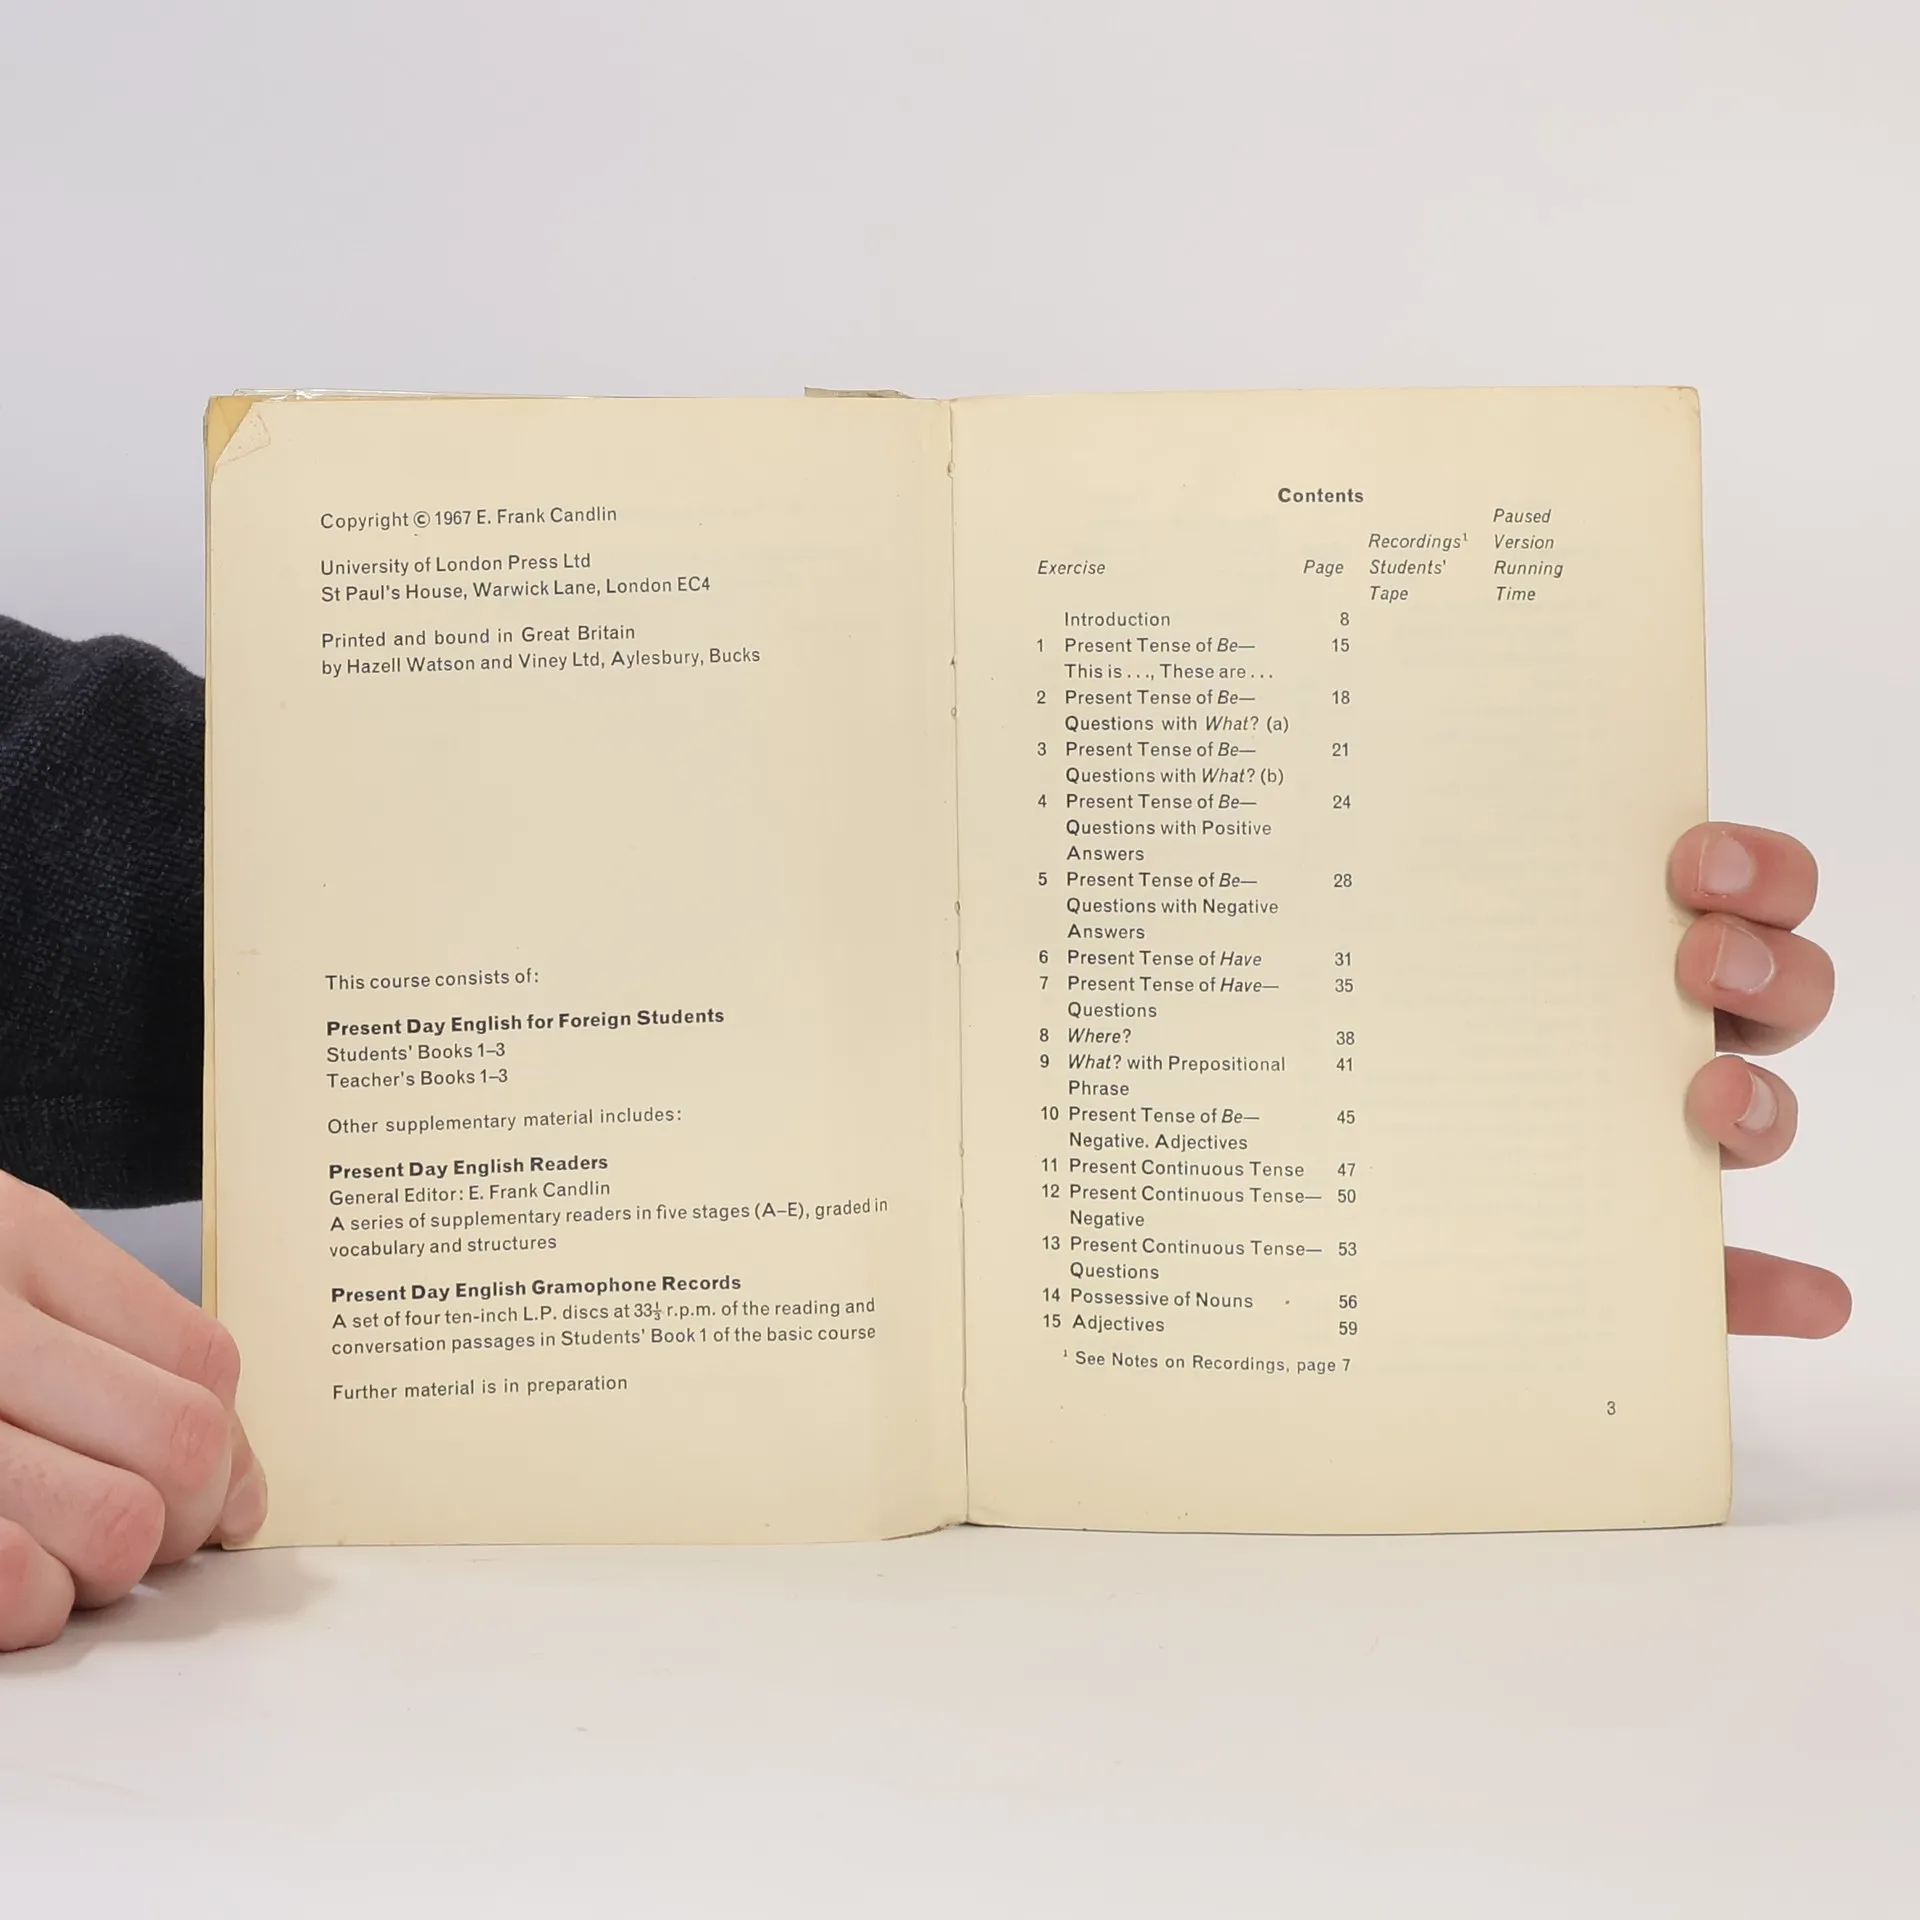 Copyright © 1967 E. Frank Candlin
University of London Press Ltd
St Paul's House, Warwick Lane, London EC4
Printed and bound in Great Britain
by Hazell Watson and Viney Ltd, Aylesbury, Bucks
This course consists of:
Present Day English for Foreign Students
Students' Books 1–3
Teacher's Books 1–3
Other supplementary material includes:
Present Day English Readers
General Editor: E. Frank Candlin
A series of supplementary readers in five stages (A–E), graded in
vocabulary and structures
Present Day English Gramophone Records
A set of four ten-inch L.P. discs at 33⅓ r.p.m. of the reading and
conversation passages in Students' Book 1 of the basic course
Further material is in preparation
Contents
Paused
Recordings¹ Version
Exercise Page Students' Running
Tape Time
Introduction 8
1 Present Tense of Be— 15
This is . . ., These are . . .
2 Present Tense of Be— 18
Questions with What? (a)
3 Present Tense of Be— 21
Questions with What? (b)
4 Present Tense of Be— 24
Questions with Positive
Answers
5 Present Tense of Be— 28
Questions with Negative
Answers
6 Present Tense of Have 31
7 Present Tense of Have— 35
Questions
8 Where? 38
9 What? with Prepositional 41
Phrase
10 Present Tense of Be— 45
Negative. Adjectives
11 Present Continuous Tense 47
12 Present Continuous Tense— 50
Negative
13 Present Continuous Tense— 53
Questions
14 Possessive of Nouns 56
15 Adjectives 59
¹ See Notes on Recordings, page 7
3